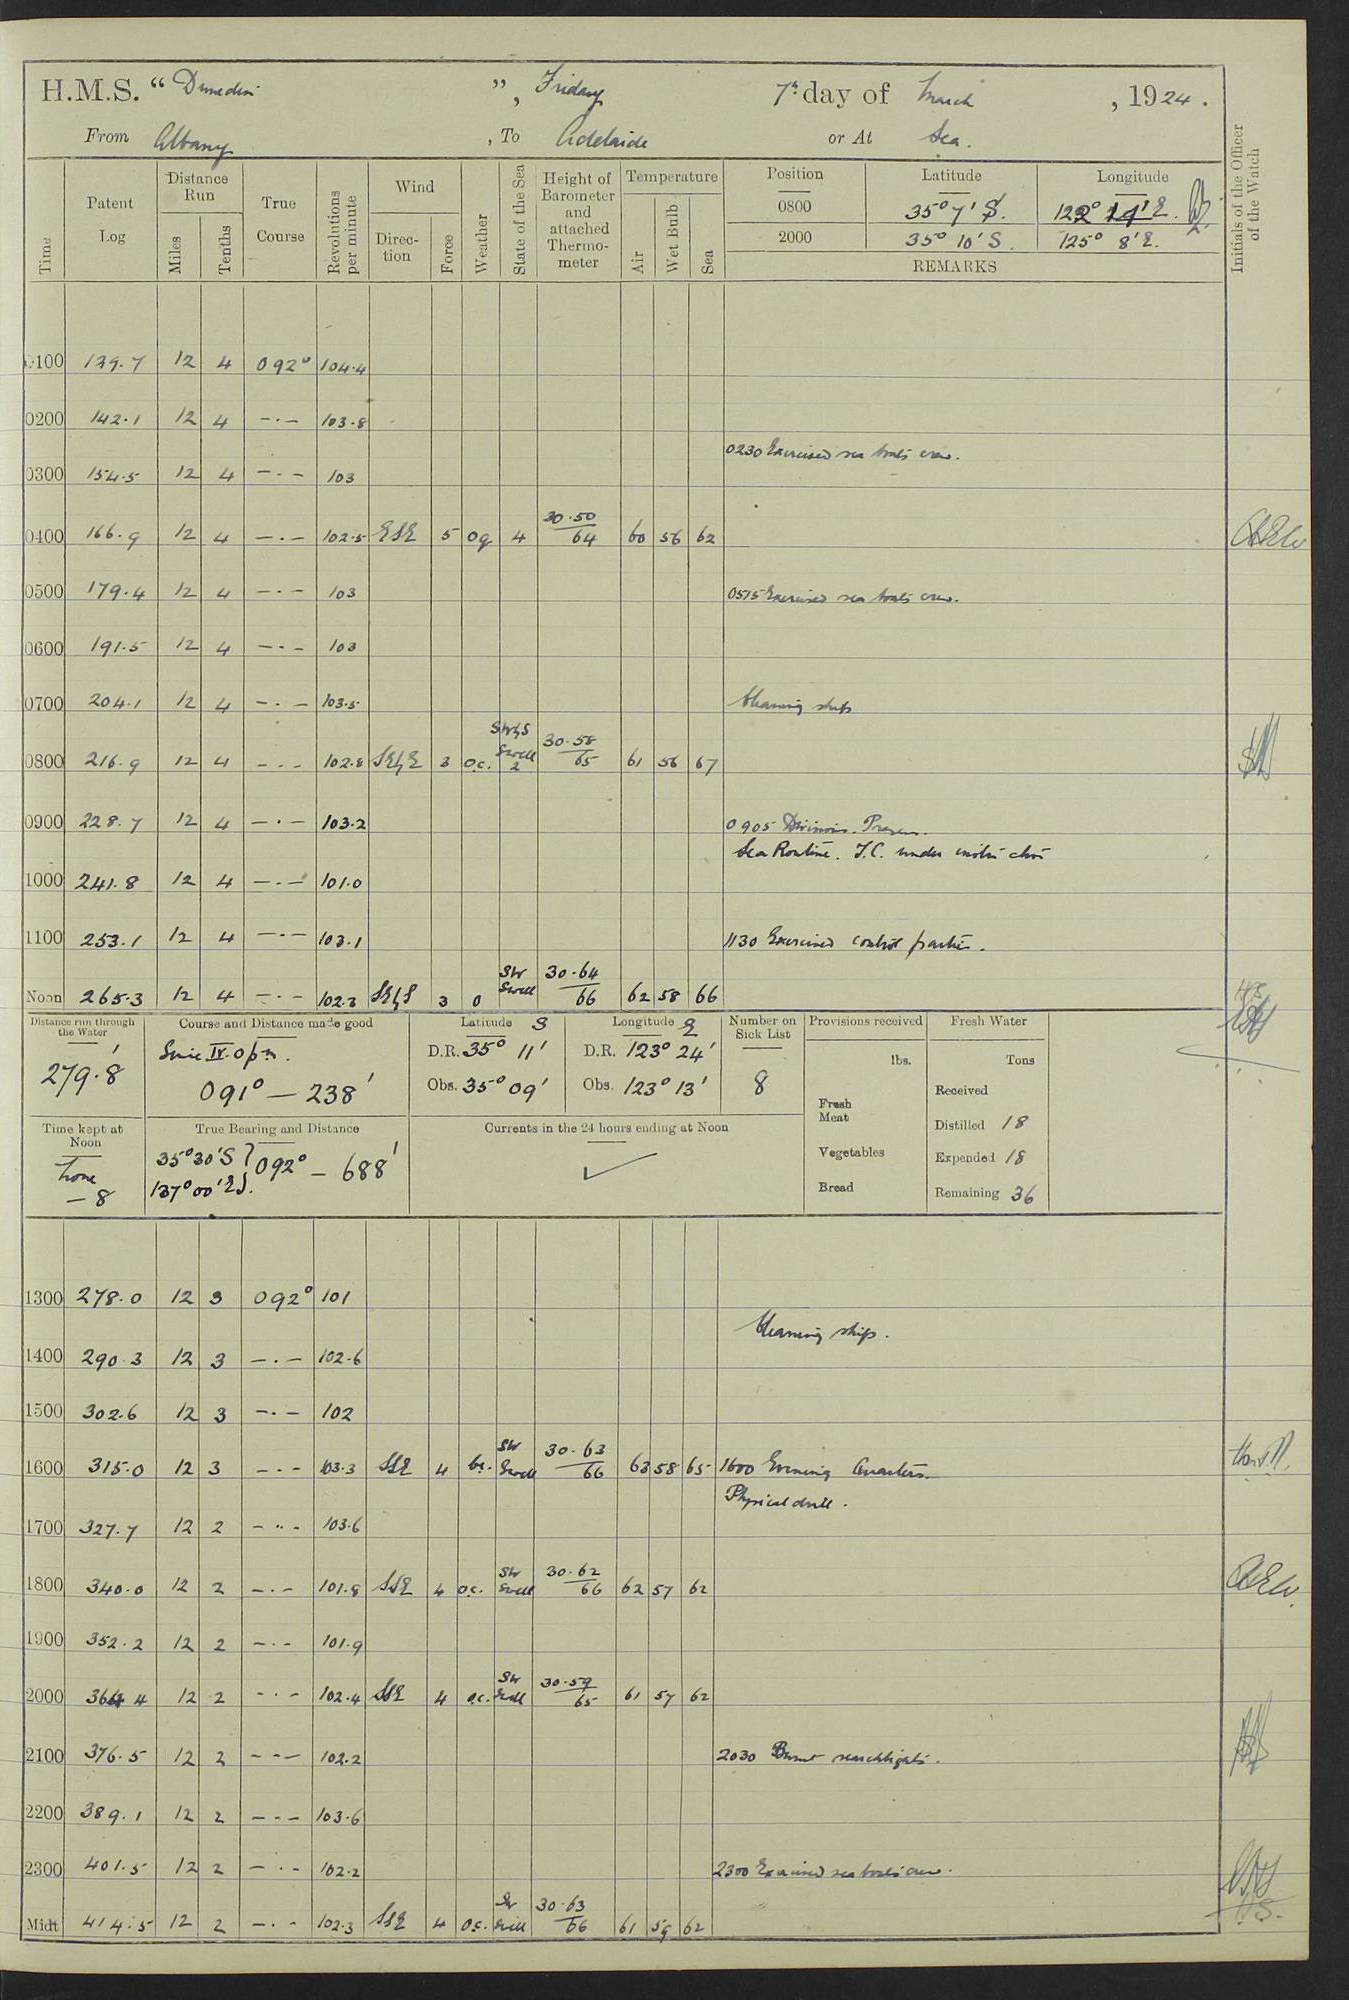 H.M.S. “ Dunedin ” , Friday 7th day of March , 1924 .
From Albany , To Adelaide or At Sea.
Time
Patent Log
Distance Run
Miles
Tenths
True Course
Revolutions per minute
Wind
Direction
Force
Weather
State of the Sea
Height of Barometer and attached Thermometer
Temperature
Air
Wet Bulb
Sea
Position Latitude Longitude
0800 35° 7' S.
2000 35° 10' S. 125° 8' E.
REMARKS
Initials of the Officer of the Watch
0100 129.7 12 4 092° 104.4
0200 142.1 12 4 —.— 103.8
0230 Exercised sea boats crew.
0300 154.5 12 4 —.— 103
0400 166.9 12 4 —.— 102.5 ESE 5 og 4 30.50 / 64 60 56 62
0500 179.4 12 4 —.— 103 0515 Exercised sea boats crew.
0600 191.5 12 4 —.— 103
0700 204.1 12 4 —.— 103.5 Cleaning ship
0800 216.9 12 4 —.— 102.8 SEbyE 3 o.c. SWbyS Swell 2 30.58 / 65 61 56 67
0900 228.7 12 4 —.— 103.2 0905 Divisions. Prayers.
Sea Routine. T.C. under
1000 241.8 12 4 —.— 101.0
1100 253.1 12 4 —.— 103.1 1130 Exercised control parties.
Noon 265.3 12 4 —.— 102.3 SEbyS 3 o SW Swell 30.64 / 66 62 58 66
Distance run through the Water
279.8'
Course and Distance made good
Since IV.0 p.m.
091° — 238'
Latitude S
D.R. 35° 11'
Obs. 35° 09'
Longitude E
D.R. 123° 24'
Obs. 123° 13'
Number on Sick List
8
Provisions received
lbs.
Fresh Meat
Vegetables
Bread
Fresh Water
Tons
Received
Distilled 18
Expended 18
Remaining 36
Time kept at Noon
Zone
— 8
True Bearing and Distance
35°30'S }
137°00'E } 092° — 688'
Currents in the 24 hours ending at Noon
1300 278.0 12 3 092° 101
Cleaning ship.
1400 290.3 12 3 —.— 102.6
1500 302.6 12 3 —.— 102
1600 315.0 12 3 —.— 103.3 SSE 4 bc. SW Swell 30.63 / 66 63 58 65 1600 Evening Quarters.
Physical drill.
1700 327.7 12 2 —.— 103.6
1800 340.0 12 2 —.— 101.8 SSE 4 o.c. SW Swell 30.62 / 66 62 57 62
1900 352.2 12 2 —.— 101.9
2000 364 4 12 2 —.— 102.4 SSE 4 o.c. SW Swell 30.59 / 65 61 57 62
2030 Burnt searchlights.
2100 376.5 12 2 —.— 102.2
2200 389.1 12 2 —.— 103.6
2300 401.5 12 2 —.— 102.2 2300 Exercised sea boats crew.
Midt 414.5 12 2 —.— 102.3 SSE 4 o.c. SW Swell 30.63 / 66 61 59 62